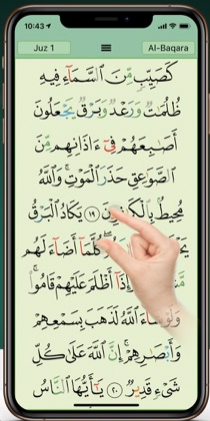 10:43
Juz 1
Al-Baqara
كَصَيِّبٍ مِّنَ ٱلسَّمَآءِ فِيهِ
ظُلُمَٰتٌ وَرَعْدٌ وَبَرْقٌ يَجْعَلُونَ
أَصَٰبِعَهُمْ فِىٓ ءَاذَانِهِم مِّنَ
ٱلصَّوَٰعِقِ حَذَرَ ٱلْمَوْتِ ۚ وَٱللَّهُ
مُحِيطٌۢ بِٱلْكَٰفِرِينَ ١٩ يَكَادُ ٱلْبَرْقُ
كُلَّمَآ أَضَآءَ لَهُم
إِذَآ أَظْلَمَ عَلَيْهِمْ قَامُوا۟ ۚ
وَلَوْ شَآءَ ٱللَّهُ لَذَهَبَ بِسَمْعِهِمْ
وَأَبْصَٰرِهِمْ ۚ إِنَّ ٱللَّهَ عَلَىٰ كُلِّ
شَىْءٍ قَدِيرٌ ٢٠ يَٰٓأَيُّهَا ٱلنَّاسُ